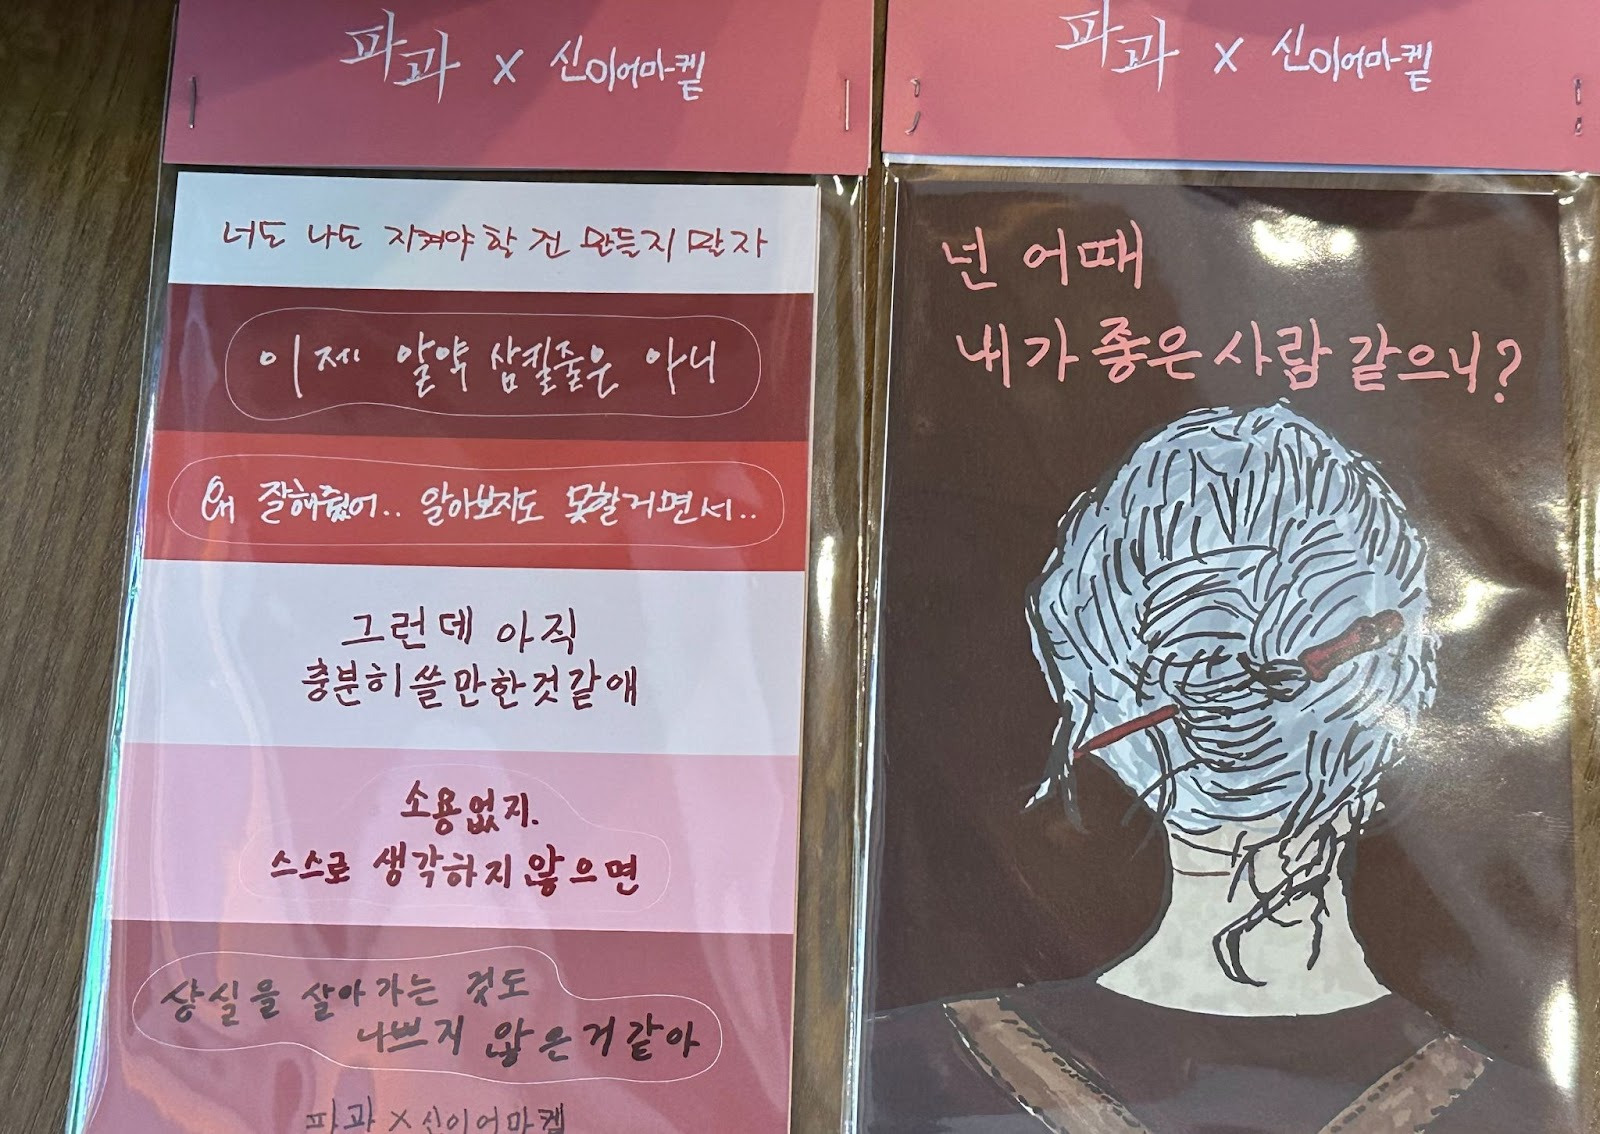 파과 x 신이어마켙
너도 나도 지켜야 할 건 만들지 말자
이제 알약 삼킬줄은 아니
왜 잘해줬어.. 알아보지도 못할거면서..
그런데 아직
충분히 쓸만한것같애
소용없지.
스스로 생각하지 않으면
상실을 살아가는 것도
나쁘지 않은거 같아
파과 x 신이어마켙
파과 x 신이어마켙
넌 어때
내가 좋은 사람 같으니?